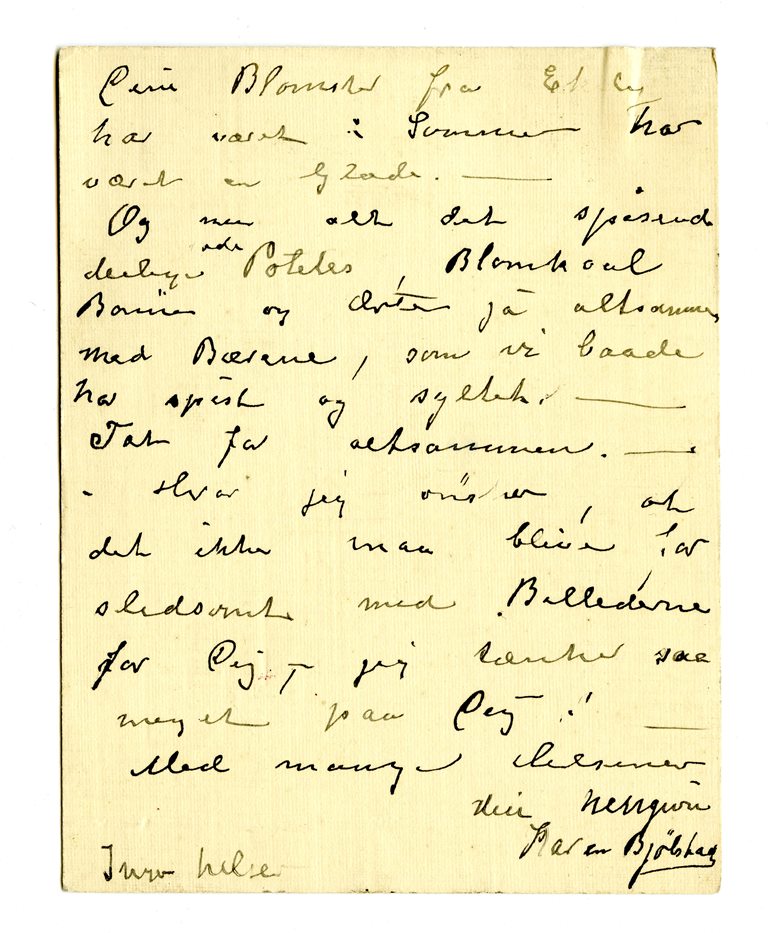 Dine Blomster fra Ekely
har været i Sommer har
været en Glæde. —
Og nu alt det spisende
deilige røde Potetes, Blomkaal
Bønner og Ærter ja altsammen
med Bærene, som vi baade
har spist og syltet. —
Tak for altsammen. —
- Hvor jeg ønsker, at
det ikke maa blive for
slidsomt med Billederne
for Dig, — jeg tænker saa
meget paa Dig! —
Med mange Hilsener
din hengivne
Karen Bjølstad
Inger hilser